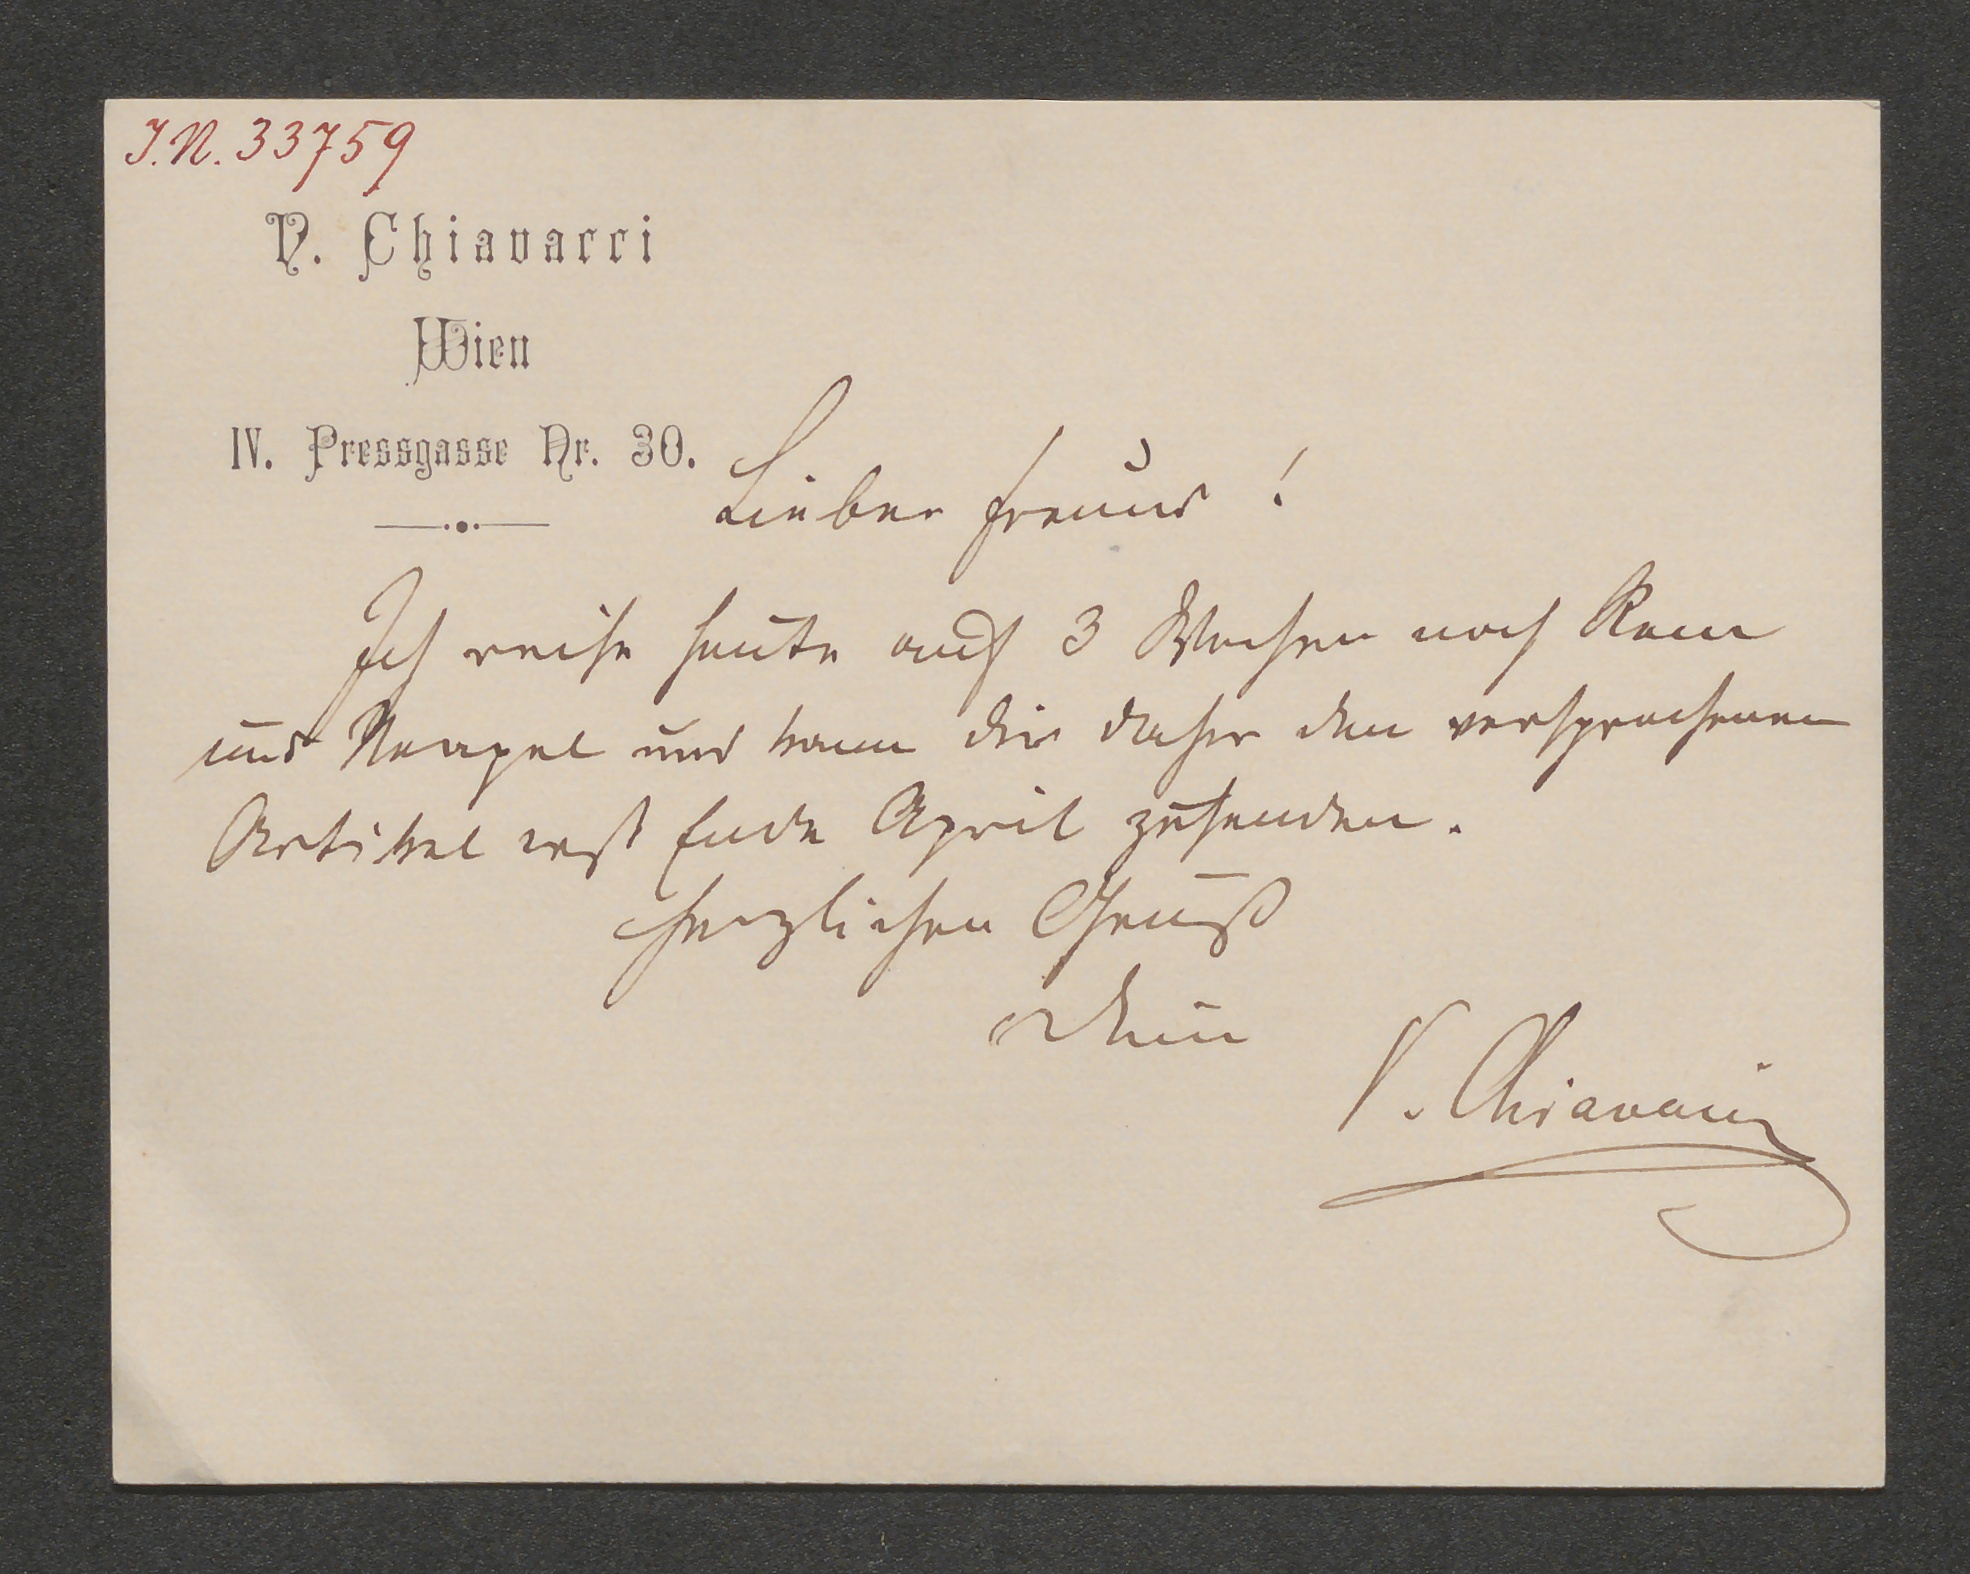 I.N. 33759
V. Chiavacci
Wien
IV. Pressgasse Nr. 30.
Lieber Freund !
Ich reise heute auf 3 Wochen nach Rom
und Neapel und kann dir daher den versprochenen
Artikel erst Ende April zusenden.
Herzlichen Gruß
Dein
V. Chiavacci